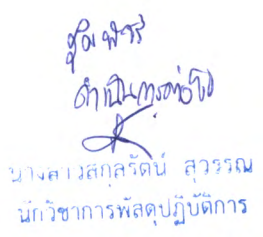 ดำเนินการต่อไป
นางสาวสกุลรัตน์ สุวรรณ
นักวิชาการพัสดุปฏิบัติการ